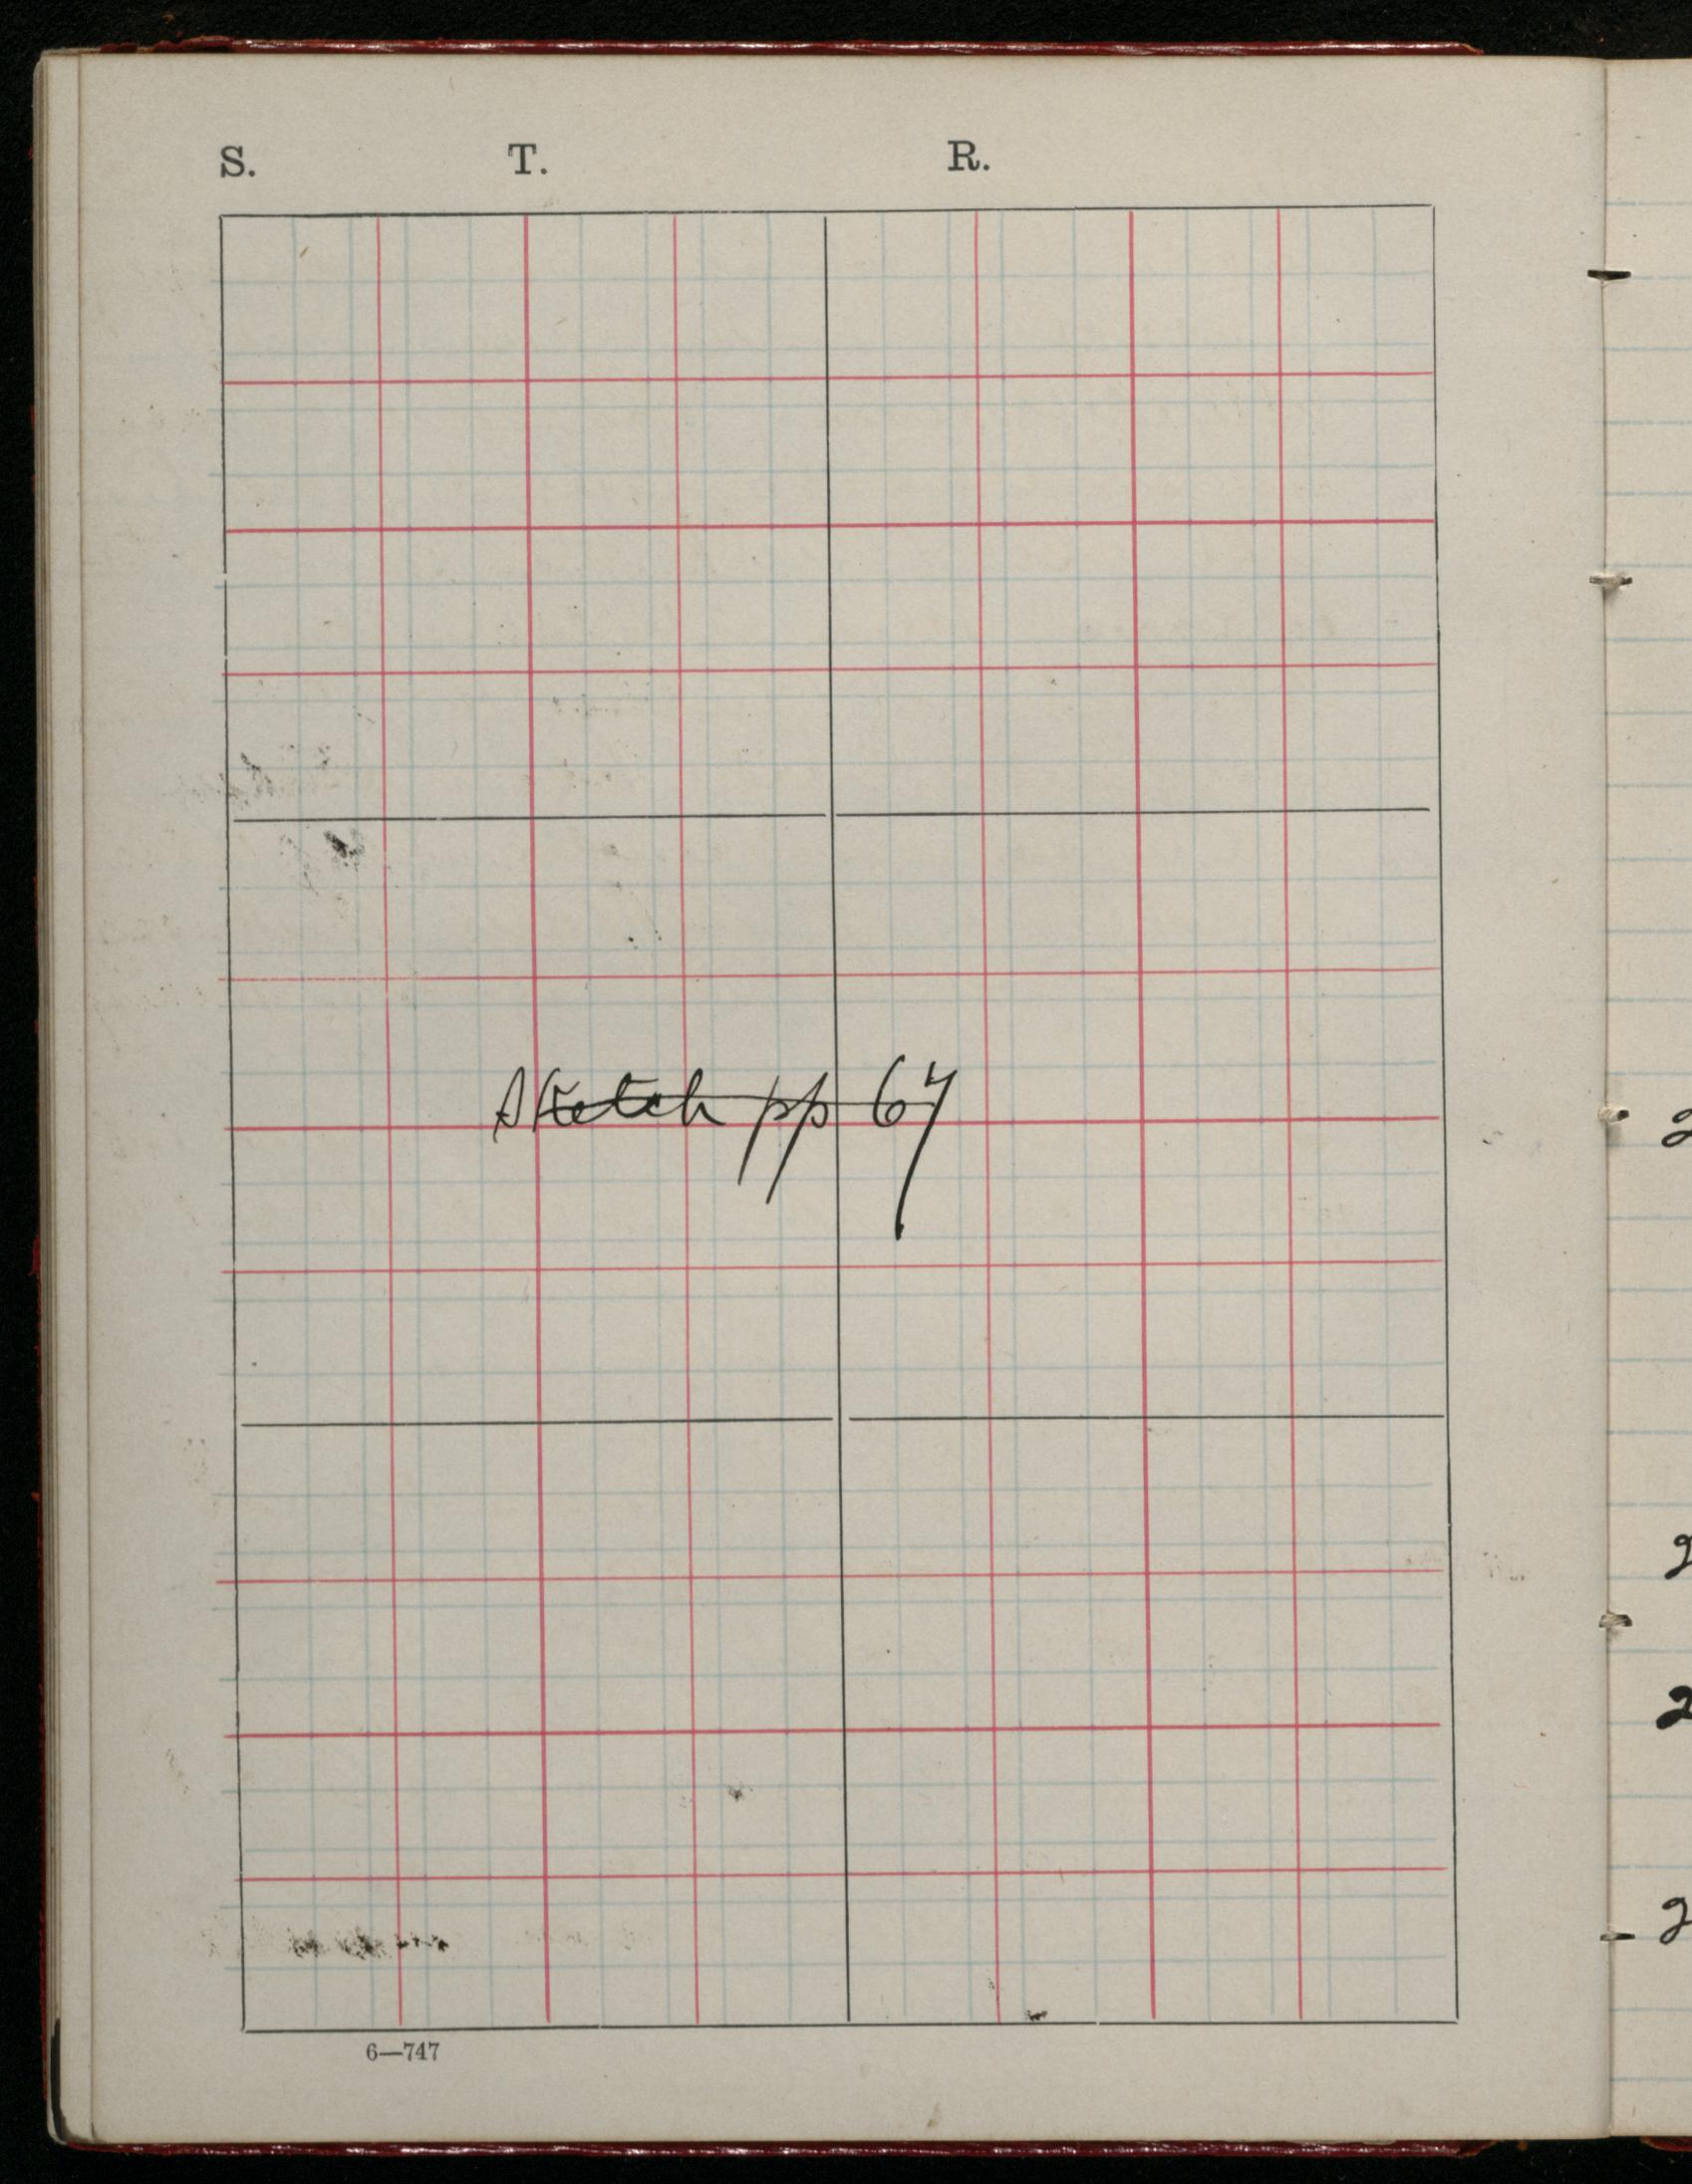 S. T. R.
Sketch pp 67
6—747